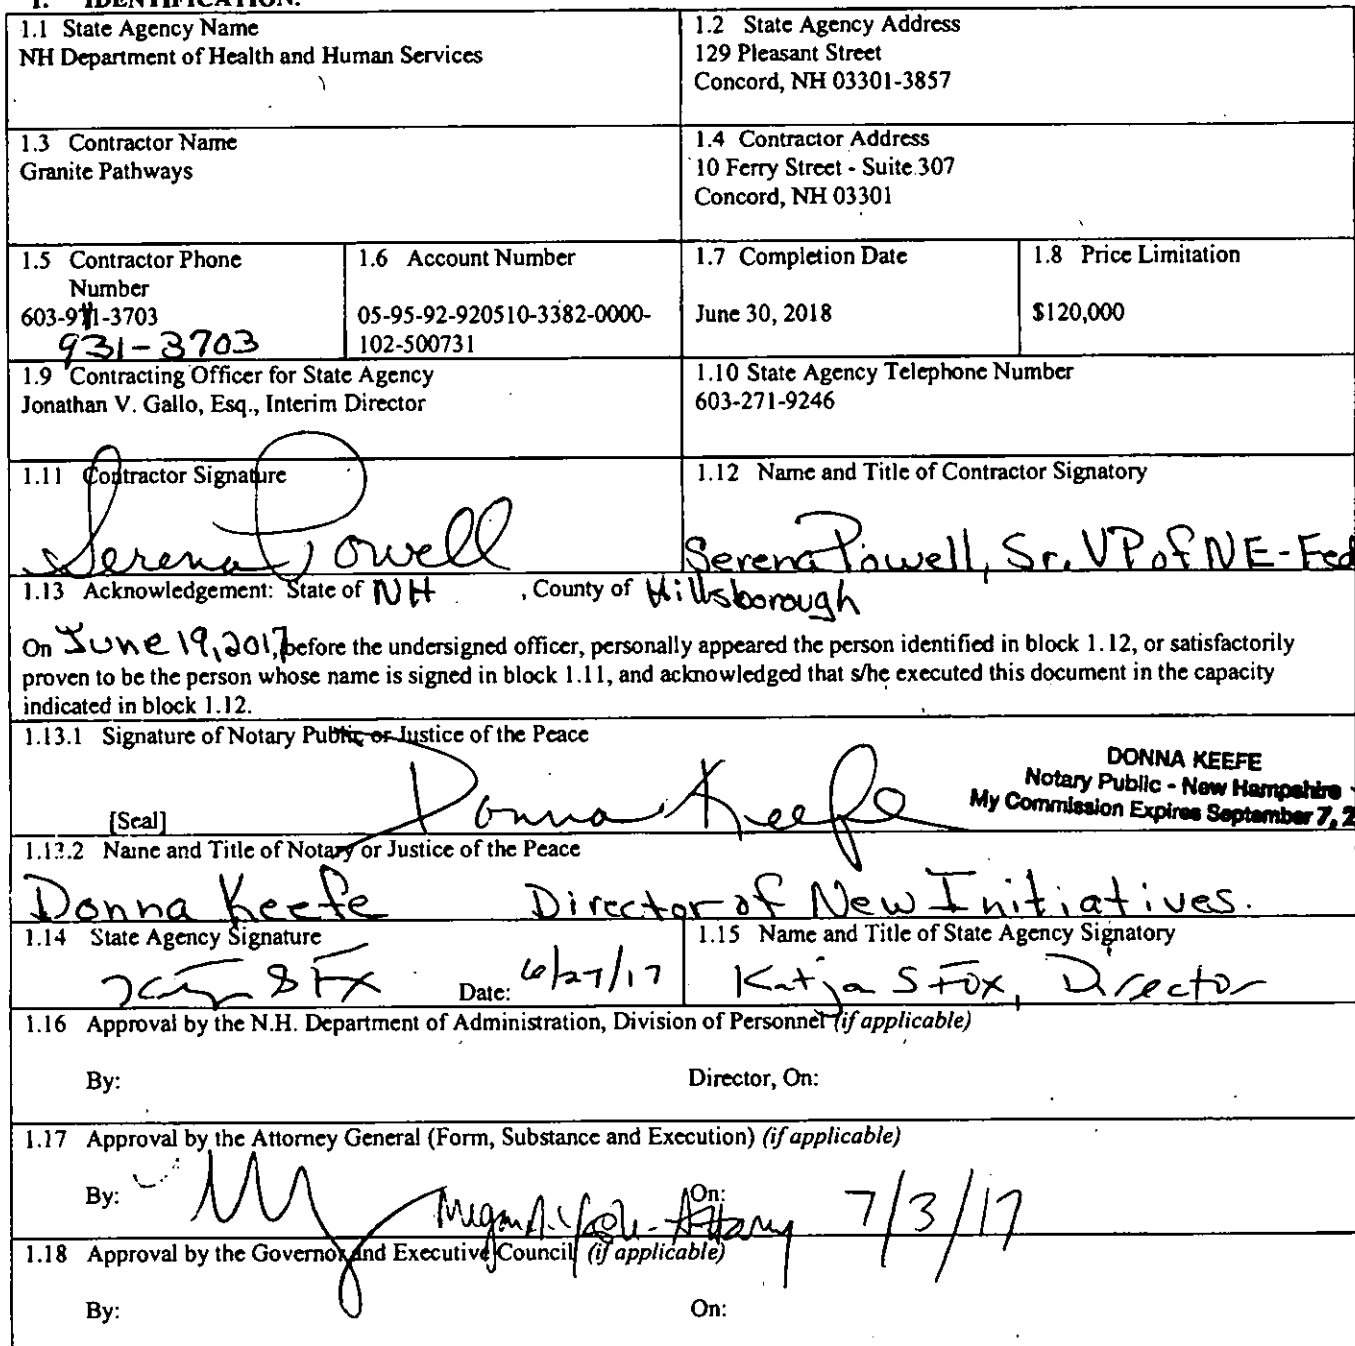 I. IDENTIFICATION.
1.1 State Agency Name
NH Department of Health and Human Services
1.2 State Agency Address
129 Pleasant Street
Concord, NH 03301-3857
1.3 Contractor Name
Granite Pathways
1.4 Contractor Address
10 Ferry Street - Suite 307
Concord, NH 03301
1.5 Contractor Phone
Number
603-911-3703
931-3703
1.6 Account Number
05-95-92-920510-3382-0000-
102-500731
1.7 Completion Date
June 30, 2018
1.8 Price Limitation
$120,000
1.9 Contracting Officer for State Agency
Jonathan V. Gallo, Esq., Interim Director
1.10 State Agency Telephone Number
603-271-9246
1.11 Contractor Signature
Serena Powell
1.12 Name and Title of Contractor Signatory
Serena Powell, Sr. VP of NE-Fed
1.13 Acknowledgement: State of NH , County of Hillsborough
On June 19, 2017, before the undersigned officer, personally appeared the person identified in block 1.12, or satisfactorily
proven to be the person whose name is signed in block 1.11, and acknowledged that s/he executed this document in the capacity
indicated in block 1.12.
1.13.1 Signature of Notary Public or Justice of the Peace
Donna Keefe
DONNA KEEFE
Notary Public - New Hampshire
My Commission Expires September 7, 2
[Seal]
1.13.2 Name and Title of Notary or Justice of the Peace
Donna Keefe Director of New Initiatives.
1.14 State Agency Signature
Date: 6/27/17
1.15 Name and Title of State Agency Signatory
Katja S Fox, Director
1.16 Approval by the N.H. Department of Administration, Division of Personnel (if applicable)
By: Director, On:
1.17 Approval by the Attorney General (Form, Substance and Execution) (if applicable)
By: Megan A. On: 7/3/17
1.18 Approval by the Governor and Executive Council (if applicable)
By: On: